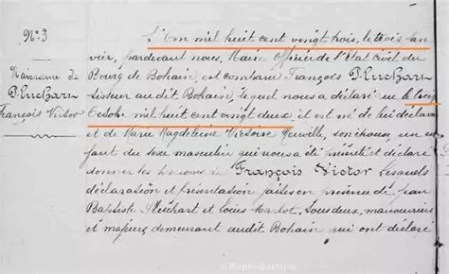 N°3
Naissance de
D'Errebarn
François Victor
L'An mil huit cent vingt trois, le trois Jan
vier, pardevant nous, Maire officier de l'Etat Civil du
Bourg de Bohain, est comparu François D'Errebarn
tisseur audit Bohain, lequel nous a déclaré que le treize
Octobre mil huit cent vingt deux, il est né de lui déclarant
et de Marie Magdeleine Neuville, son épouse, un en
fant du sexe masculin qui nous a été présenté et déclaré
donner les prénoms de François Victor lesquels
déclaration et présentation faites en présence de Jean
Baptiste et Louis tous deux, manouvriers
et majeurs demeurant audit Bohain qui ont déclaré